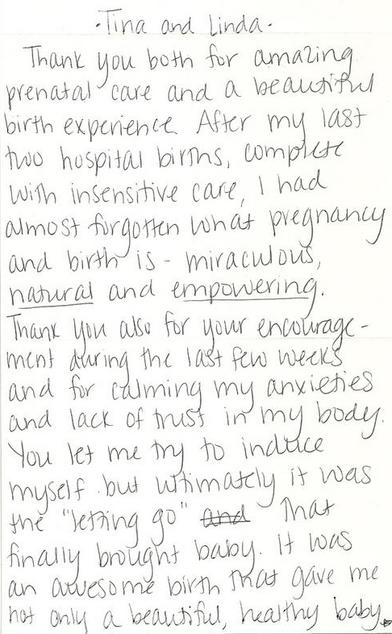 ·Tina and Linda·
Thank you both for amazing
prenatal care and a beautiful
birth experience. After my last
two hospital births, complete
with insensitive care, I had
almost forgotten what pregnancy
and birth is - miraculous,
natural and empowering.
Thank you also for your encourage-
ment during the last few weeks
and for calming my anxieties
and lack of trust in my body.
You let me try to induce
myself but ultimately it was
the "letting go" and that
finally brought baby. It was
an awesome birth that gave me
not only a beautiful, healthy baby